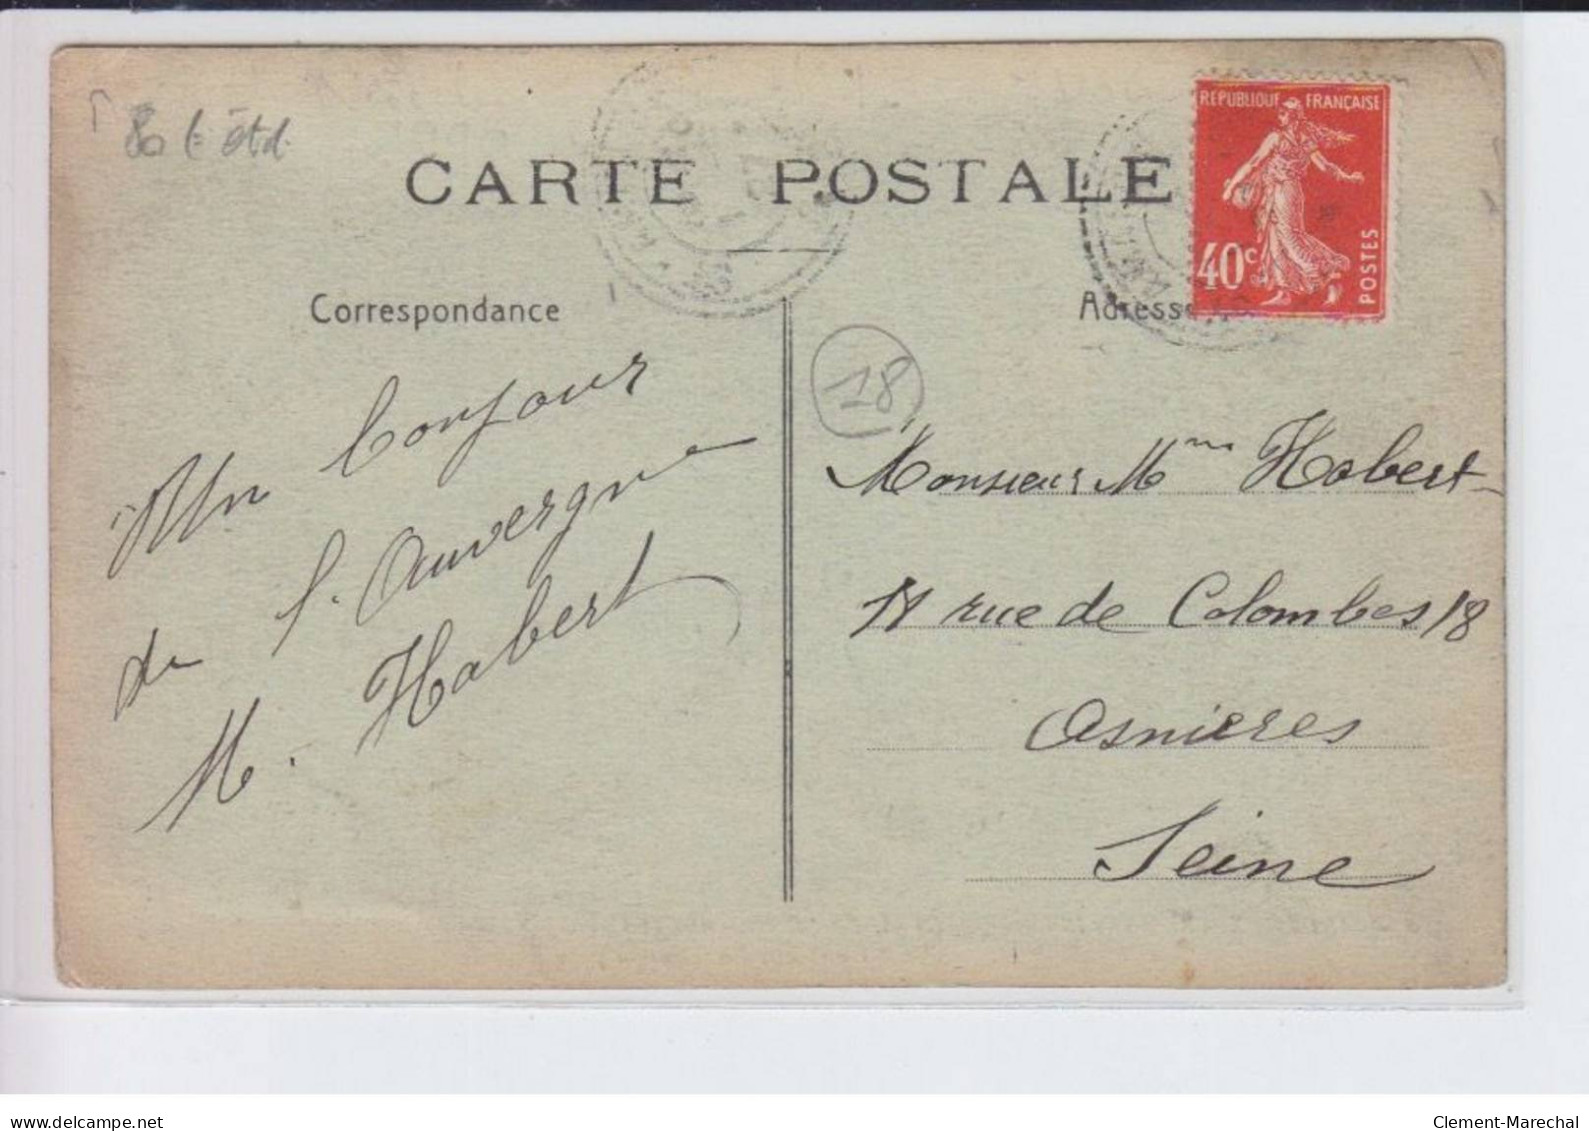 CARTE POSTALE
REPUBLIQUE FRANÇAISE
40c
POSTES
Correspondance
Adresse
18
Un bonjour
de l'Auvergne
M. Habert
Monsieur Mme Habert
rue de Colombes 18
Asnieres
Seine
delcampe.net
Clement-Marechal